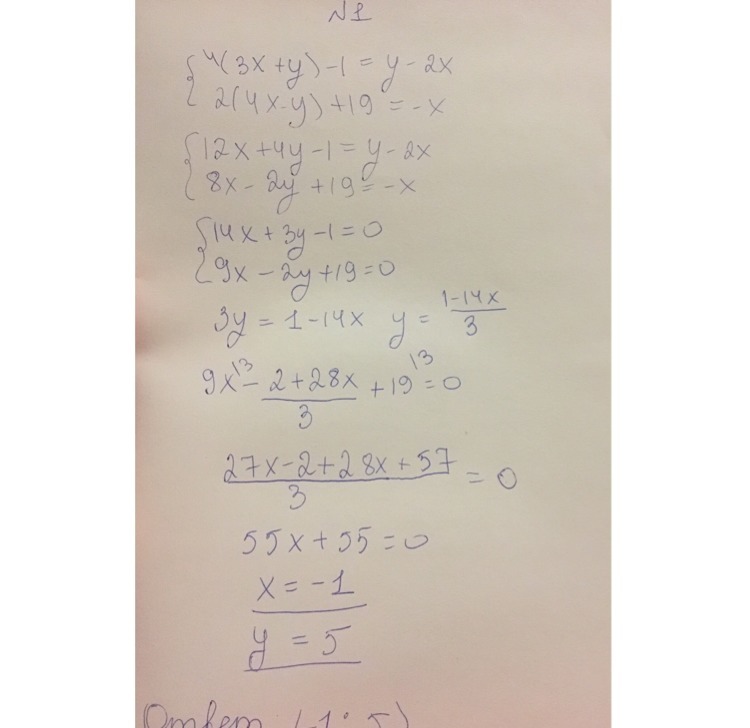 №1
{ 4(3x+y)-1 = y-2x
2(4x-y)+19 = -x
{ 12x+4y-1 = y-2x
8x-2y+19 = -x
{ 14x+3y-1 = 0
9x-2y+19 = 0
3y = 1-14x y = (1-14x)/3
9x\3 - (2+28x)/3 + 19\3 = 0
(27x-2+28x+57)/3 = 0
55x+55 = 0
x = -1
y = 5
Ответ (-1; 5)